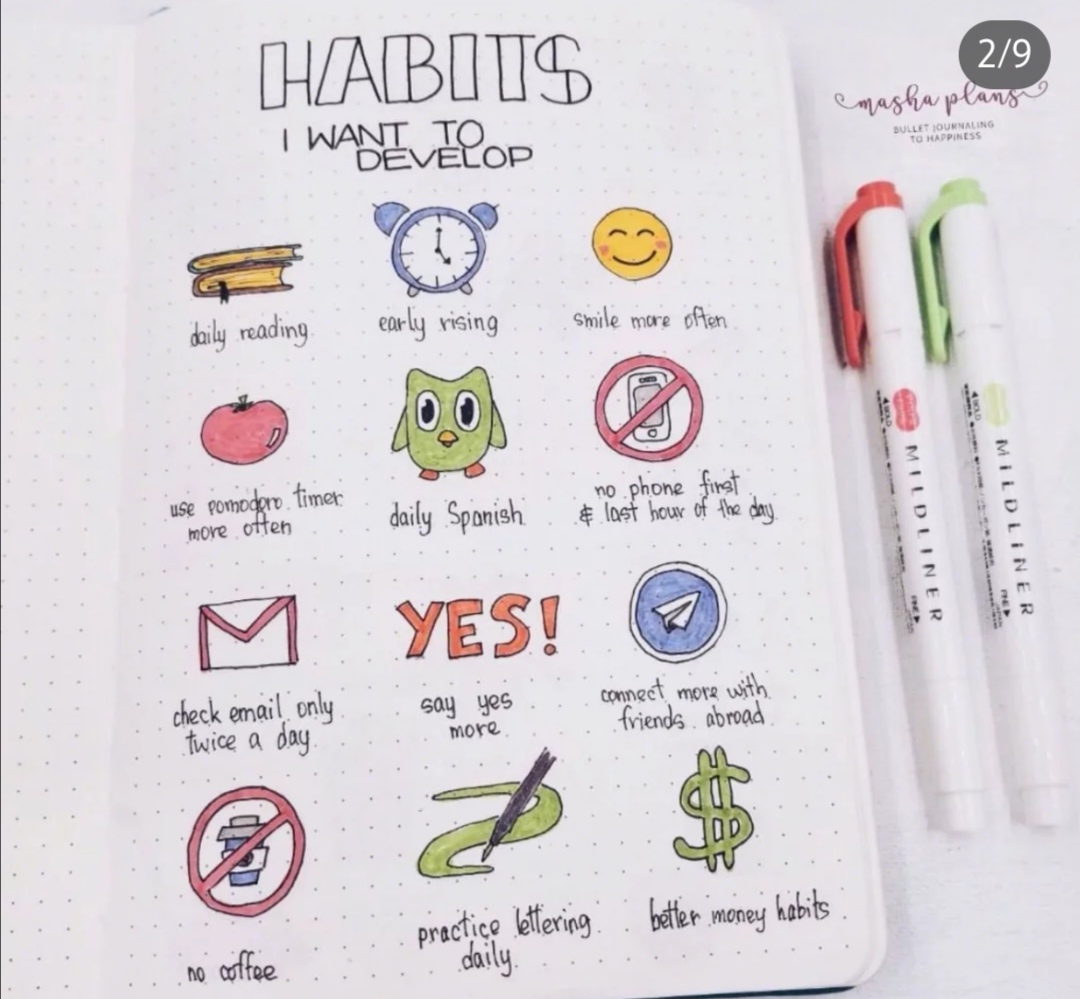 2/9
HABITS
I WANT TO
DEVELOP
masha plans
BULLET JOURNALING
TO HAPPINESS
daily reading
early rising
smile more often
use pomodoro timer
more often
daily Spanish
no phone first
& last hour of the day
check email only
twice a day
YES!
say yes
more
connect more with
friends abroad
no coffee
practice lettering
daily.
$
better money habits
BOLD
MILDLINER
FINE
BOLD
MILDLINER
FINE